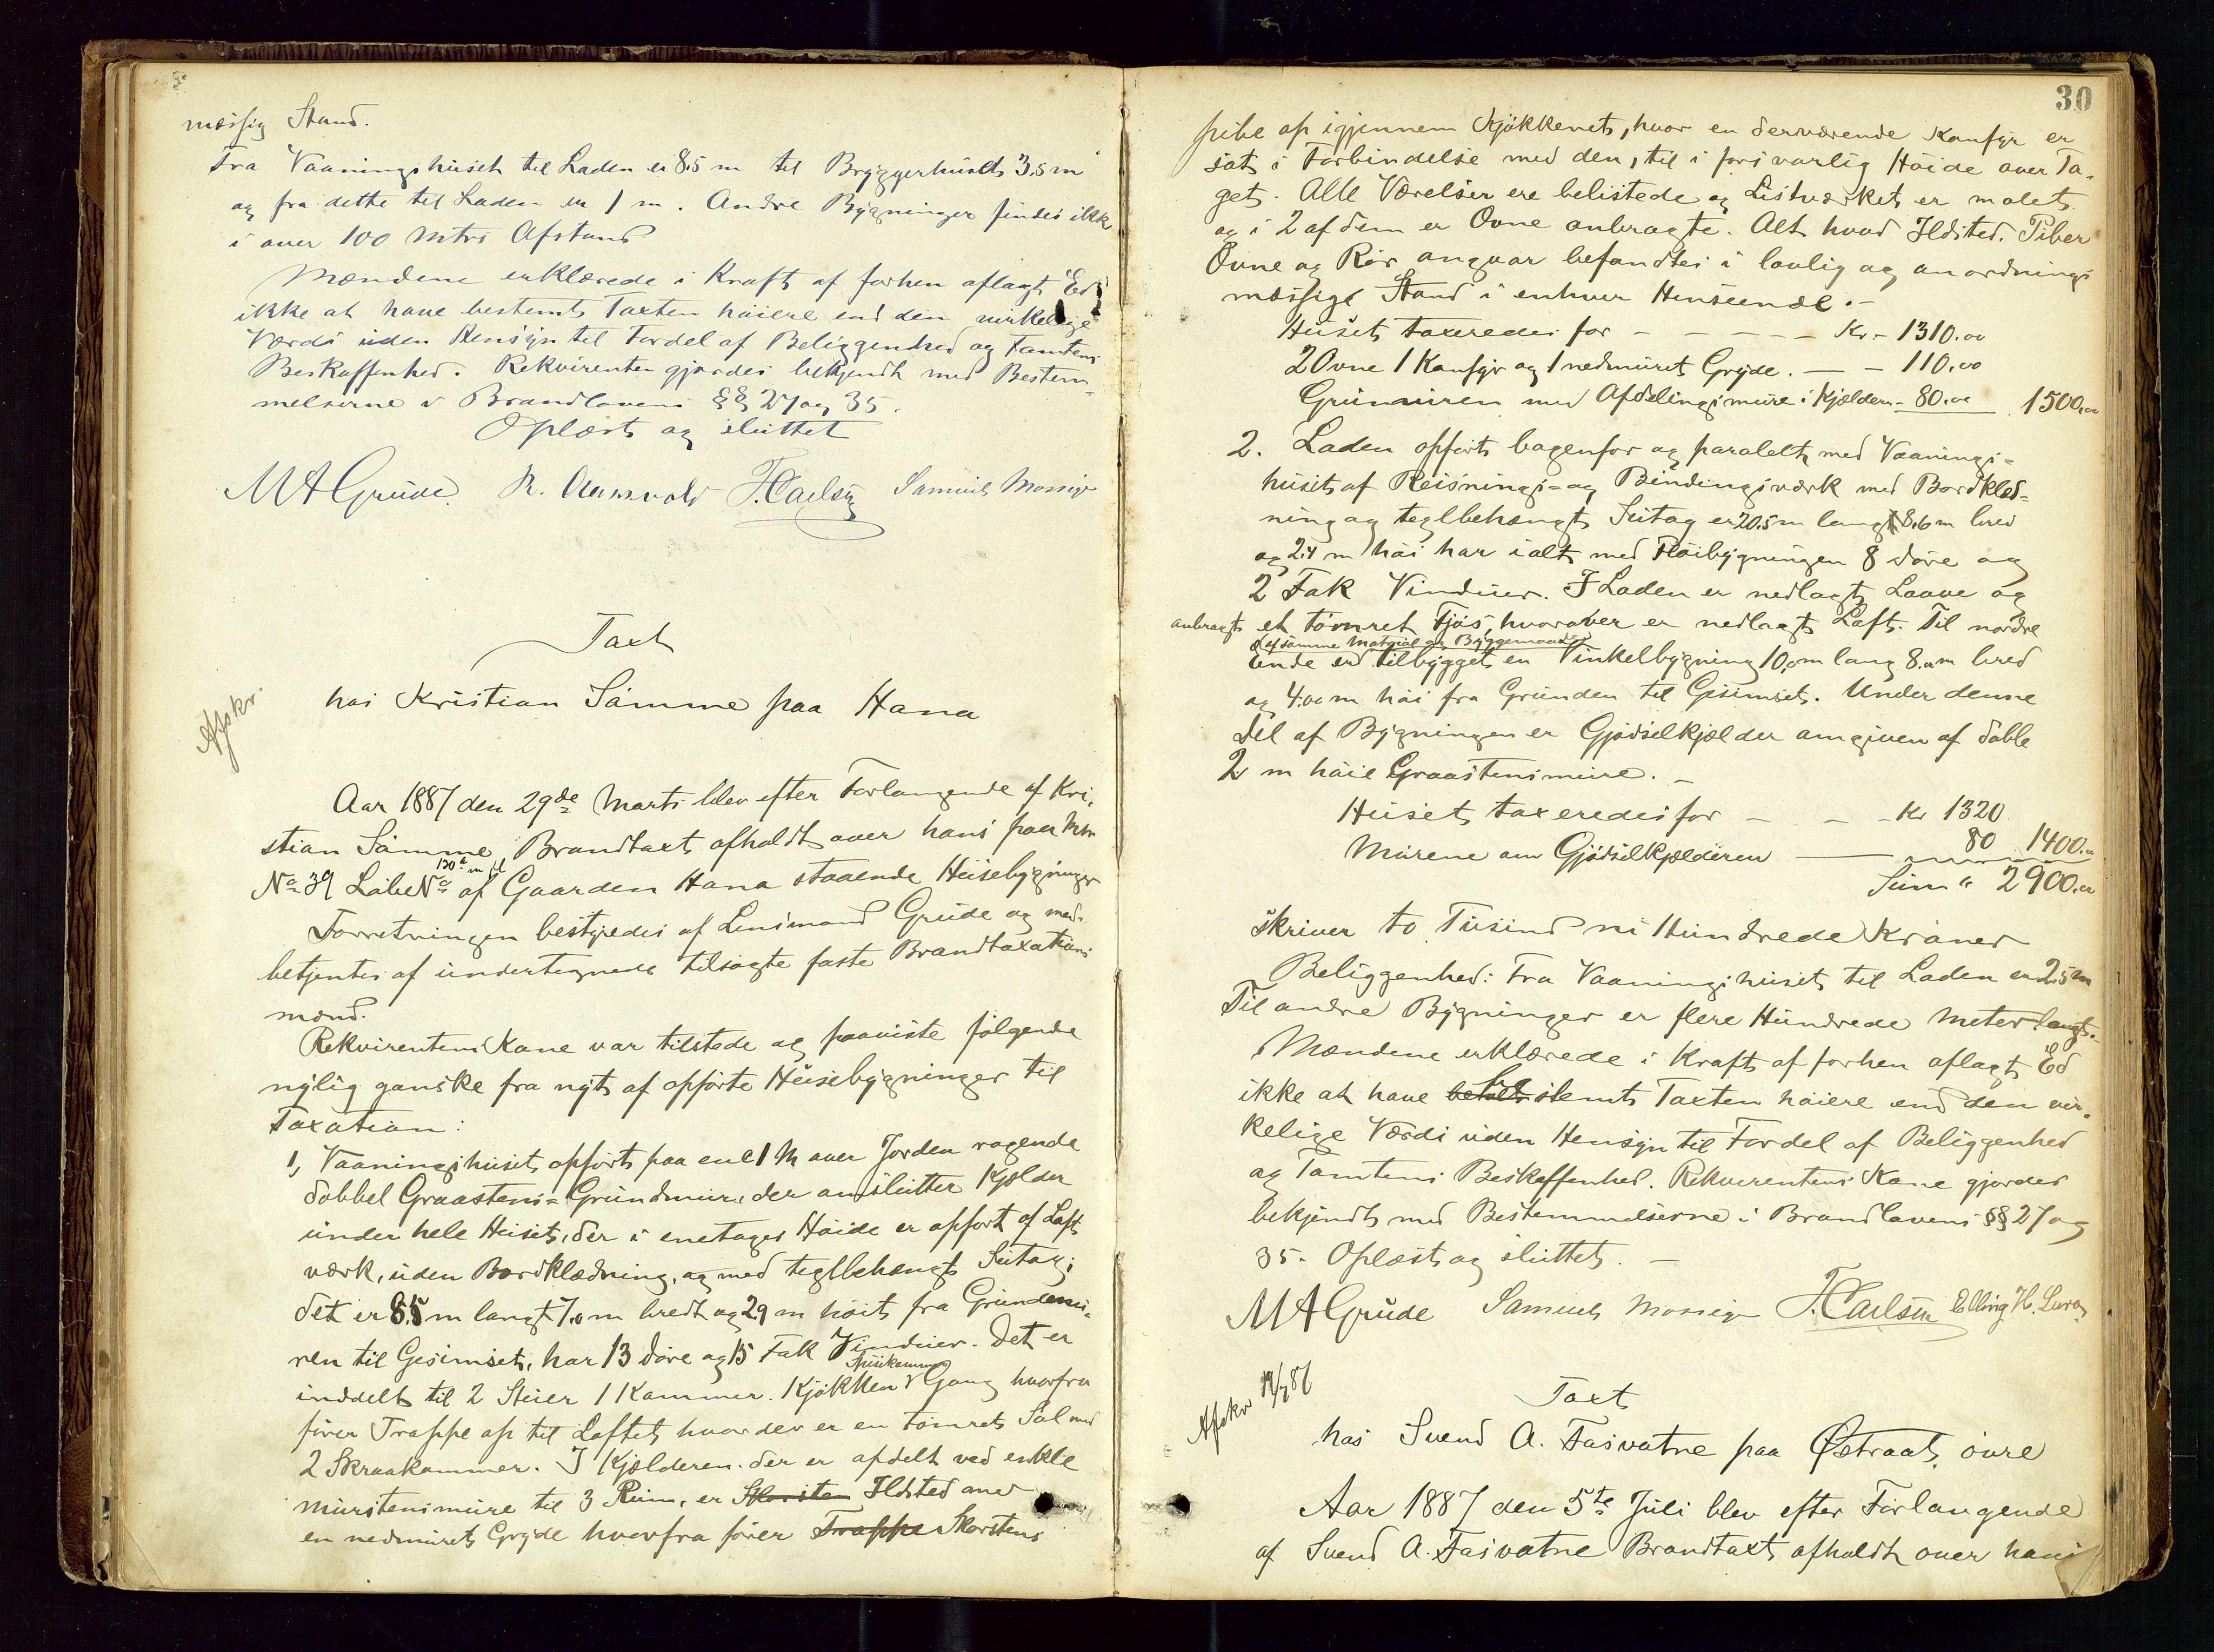 mæssig Stand.
Fra Vaaningshuset til Laden er 8.5 m til Bryggerhuset 3.5 m
og fra dette til Laden er 1 m. Andre Bygninger findes ikke
i over 100 Mtrs Afstand
Mændene erklærede i Kraft af forhen aflagt Ed
ikke at have bestemt Taxten høiere end den virkelige
Værdi uden Hensyn til Fordel af Beliggenhed og Tomtens
Beskaffenhed. Rekvirenten gjordes bekjendt med Bestem-
melserne i Brandlovens §§ 27 og 35.
Oplæst og sluttet
M A Grude. R. Aamvold T. Carlsen Samuel Mossige
Taxt
hos Kristian Sømme paa Hana
Afskr.
Aar 1887 den 29de Marts blev efter Forlangende af Kri-
stian Sømme Brandtaxt afholdt over hans paa Mtr
No 39 Løbe No 130 a m fl af Gaarden Hana staaende Husebygninger
Forretningen bestyredes af Lensmand Grude og med-
betjentes af undertegnede tilsagte faste Brandtaxations
mænd.
Rekvirentens Kone var tilstede og paaviste følgende
nylig ganske fra nyt af opførte Husebygninger til
Taxation:
1, Vaaningshuset, opført paa en 1 M over Jorden ragende
dobbel Graastens-Grundmur, der omslutter Kjelder
under hele Huset, der i enetages Høide er opført af Laft
værk, uden Bordklædning, og med teglbehængt Sutag;
det er 8.5 m langt 7.0 m bredt og 2.9 m høit fra Grundmu-
ren til Gesimset, har 13 Døre og 15 Fak Vinduer. Det er
inddelt til 2 Stuer 1 Kammer. Kjøkken Spisekammer & Gang hvorfra
fører Trappe op til Loftet, hvor der er en tømret Sal med
2 Skraakammer. I Kjælderen, der er afdelt ved enkle
Murstensmure til 3 Rum, er Skorsten Ildsted med
en nedmuret Gryde hvorfra fører Trappe Skorstens
30
pibe op igjennem Kjøkkenet, hvor en derværende Komfyr er
sat i Forbindelse med den, til i forsvarlig Høide over Ta-
get. Alle Værelser ere belistede og Listværket er malet
og i 2 af dem er Ovne anbragte. Alt hvad Ildsted, Piber
Ovne og Rør angaar befandtes i lovlig og anordnings
mæssige Stand i enhver Henseende.-
Huset taxeredes for - - - - - Kr.- 1310.00
2 Ovne 1 Komfyr og 1 nedmuret Gryde. - - 110.00
Grunmuren med Afdelingsmure i Kjælderen - 80.00 1500.00
2. Laden opført bagenfor og paralelt med Vaanings-
huset af Reisnings- og Bindingsværk med Bordklæd-
ning og teglbehængt Sutag er 20.5 m lang 8.6 m bred
og 2.4 m høi har ialt med Tilbygningen 8 Døre og
2 Fak Vinduer. I Laden er nedlagt Laave og
anbragt et tømret Fjøs, hvorover er nedlagt Loft. Til nordre
(af samme Matrial og Byggemaade)
Ende er tilbygget en Vinkelbygning 10.0 m lang 8.0 m bred
og 4.00 m høi fra Grunden til Gesimset. Under denne
Del af Bygningen er Gjødselkjælder omgiven af doble
2 m høie Graastensmure. -
Huset taxeredes for - - - Kr 1320
Murene om Gjødselkjælderen - 80 1400.00
Sum " 2900.00
skriver to Tusind ni Hundrede Kroner
Beliggenhed: Fra Vaaningshuset til Laden er 2.5 m
Til andre Bygninger er flere Hundrede Meter langt.-
Mændene erklærede i Kraft af forhen aflagt Ed
ikke at have bestemt Taxten høiere end den vir-
kelige Værdi uden Hensyn til Fordel af Beliggenhed
og Tomtens Beskaffenhed. Rekvirentens Kone gjordes
bekjendt med Bestemmelserne i Brandlovens §§ 27 og
35. Oplæst og sluttet. -
M A Grude Samuel Mossige T. Carlsen Elling H. Lura
Afskr 19/7 87
Taxt
hos Svend A. Fasvatne paa Østraat, øvre
Aar 1887 den 5te Juli blev efter Forlangende
af Svend A. Fasvatne Brandtaxt afholdt over hans